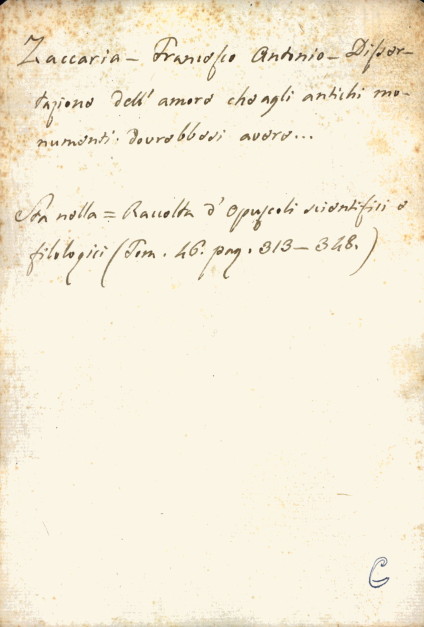 Zaccaria - Francesco Antonio - Disser-
tazione dell' amore che agli antichi mo-
numenti dovrebbesi avere...
Sta nella = Raccolta d' Opuscoli scientifici e
filologici (Tom. 46. pag. 313 - 348.)
C